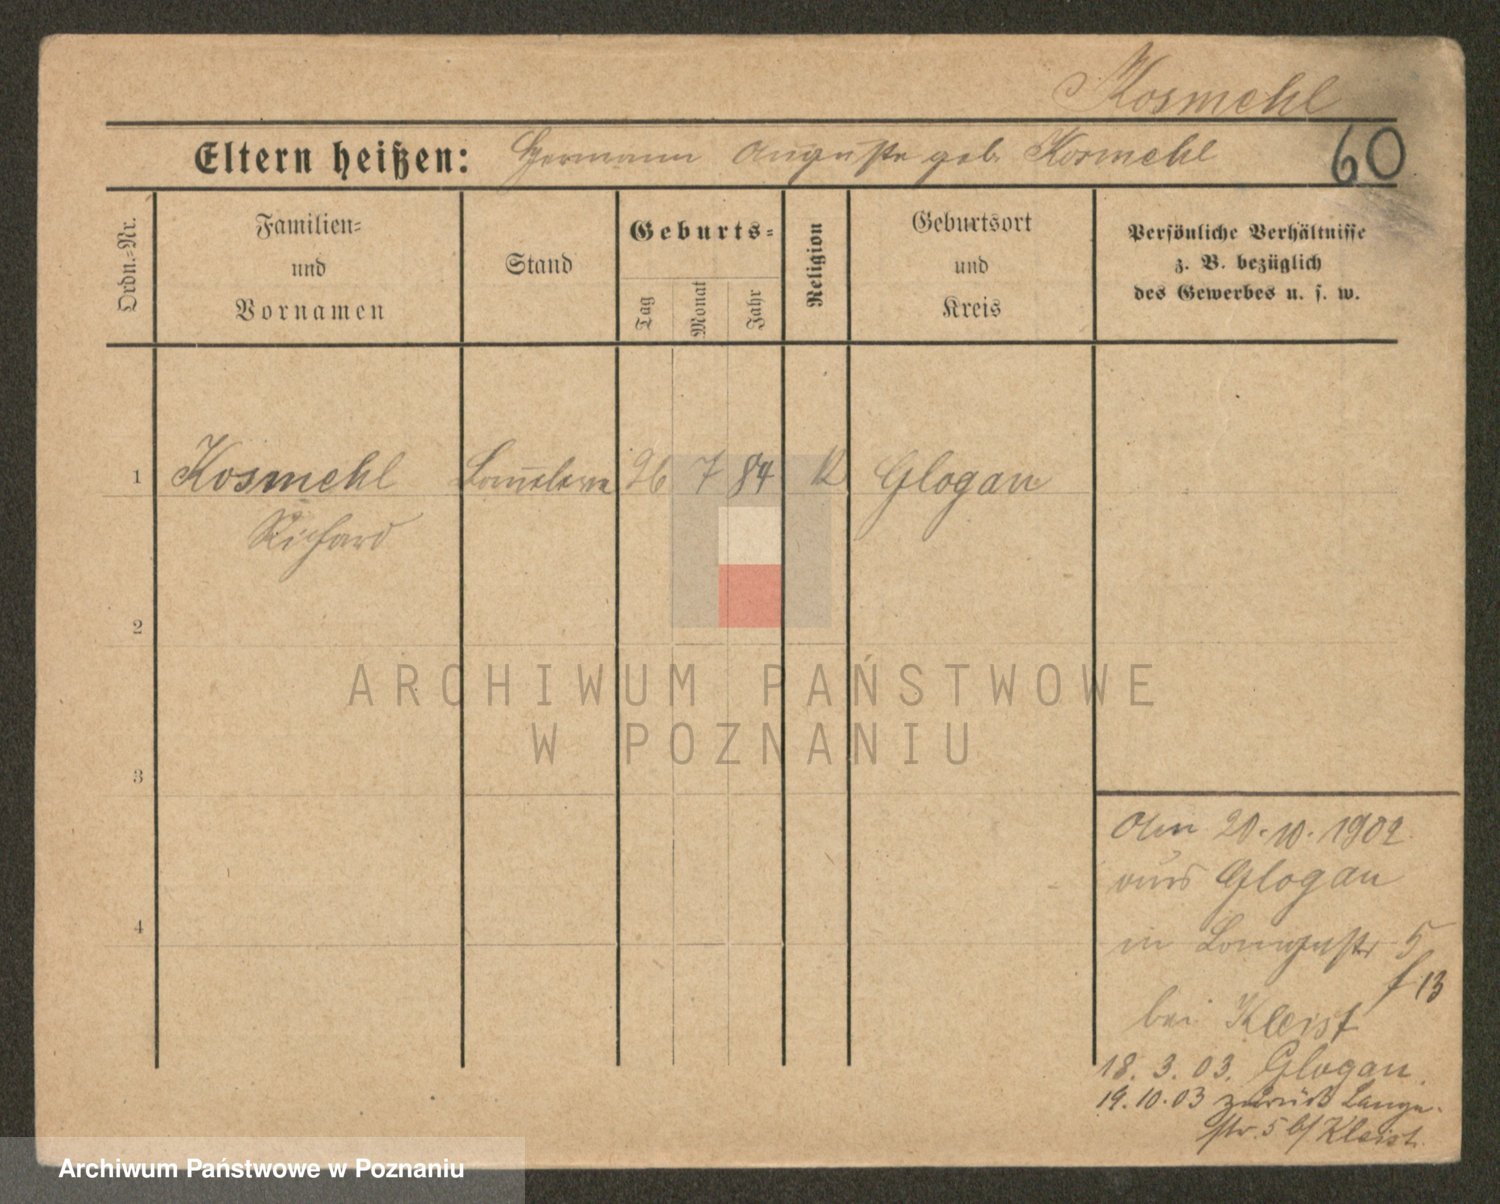 Kosmehl
Eltern heißen: Hermann Auguste geb. Kosmehl
60
Ordn.-Nr.
Familien-
und
Vornamen
Stand
Geburts-
Tag
Monat
Jahr
Religion
Geburtsort
und
Kreis
Persönliche Verhältnisse
z. B. bezüglich
des Gewerbes u. s. w.
1 Kosmehl 26 7 84 K Glogau
Richard
2
3
4
ARCHIWUM PAŃSTWOWE
W POZNANIU
Am 20.10.1902
aus Glogau
in Langestr 5
f 13
bei Kleist
18. 3. 03. Glogau.
19.10.03 zurück Lange-
str. 5 b/ Kleist.
Archiwum Państwowe w Poznaniu